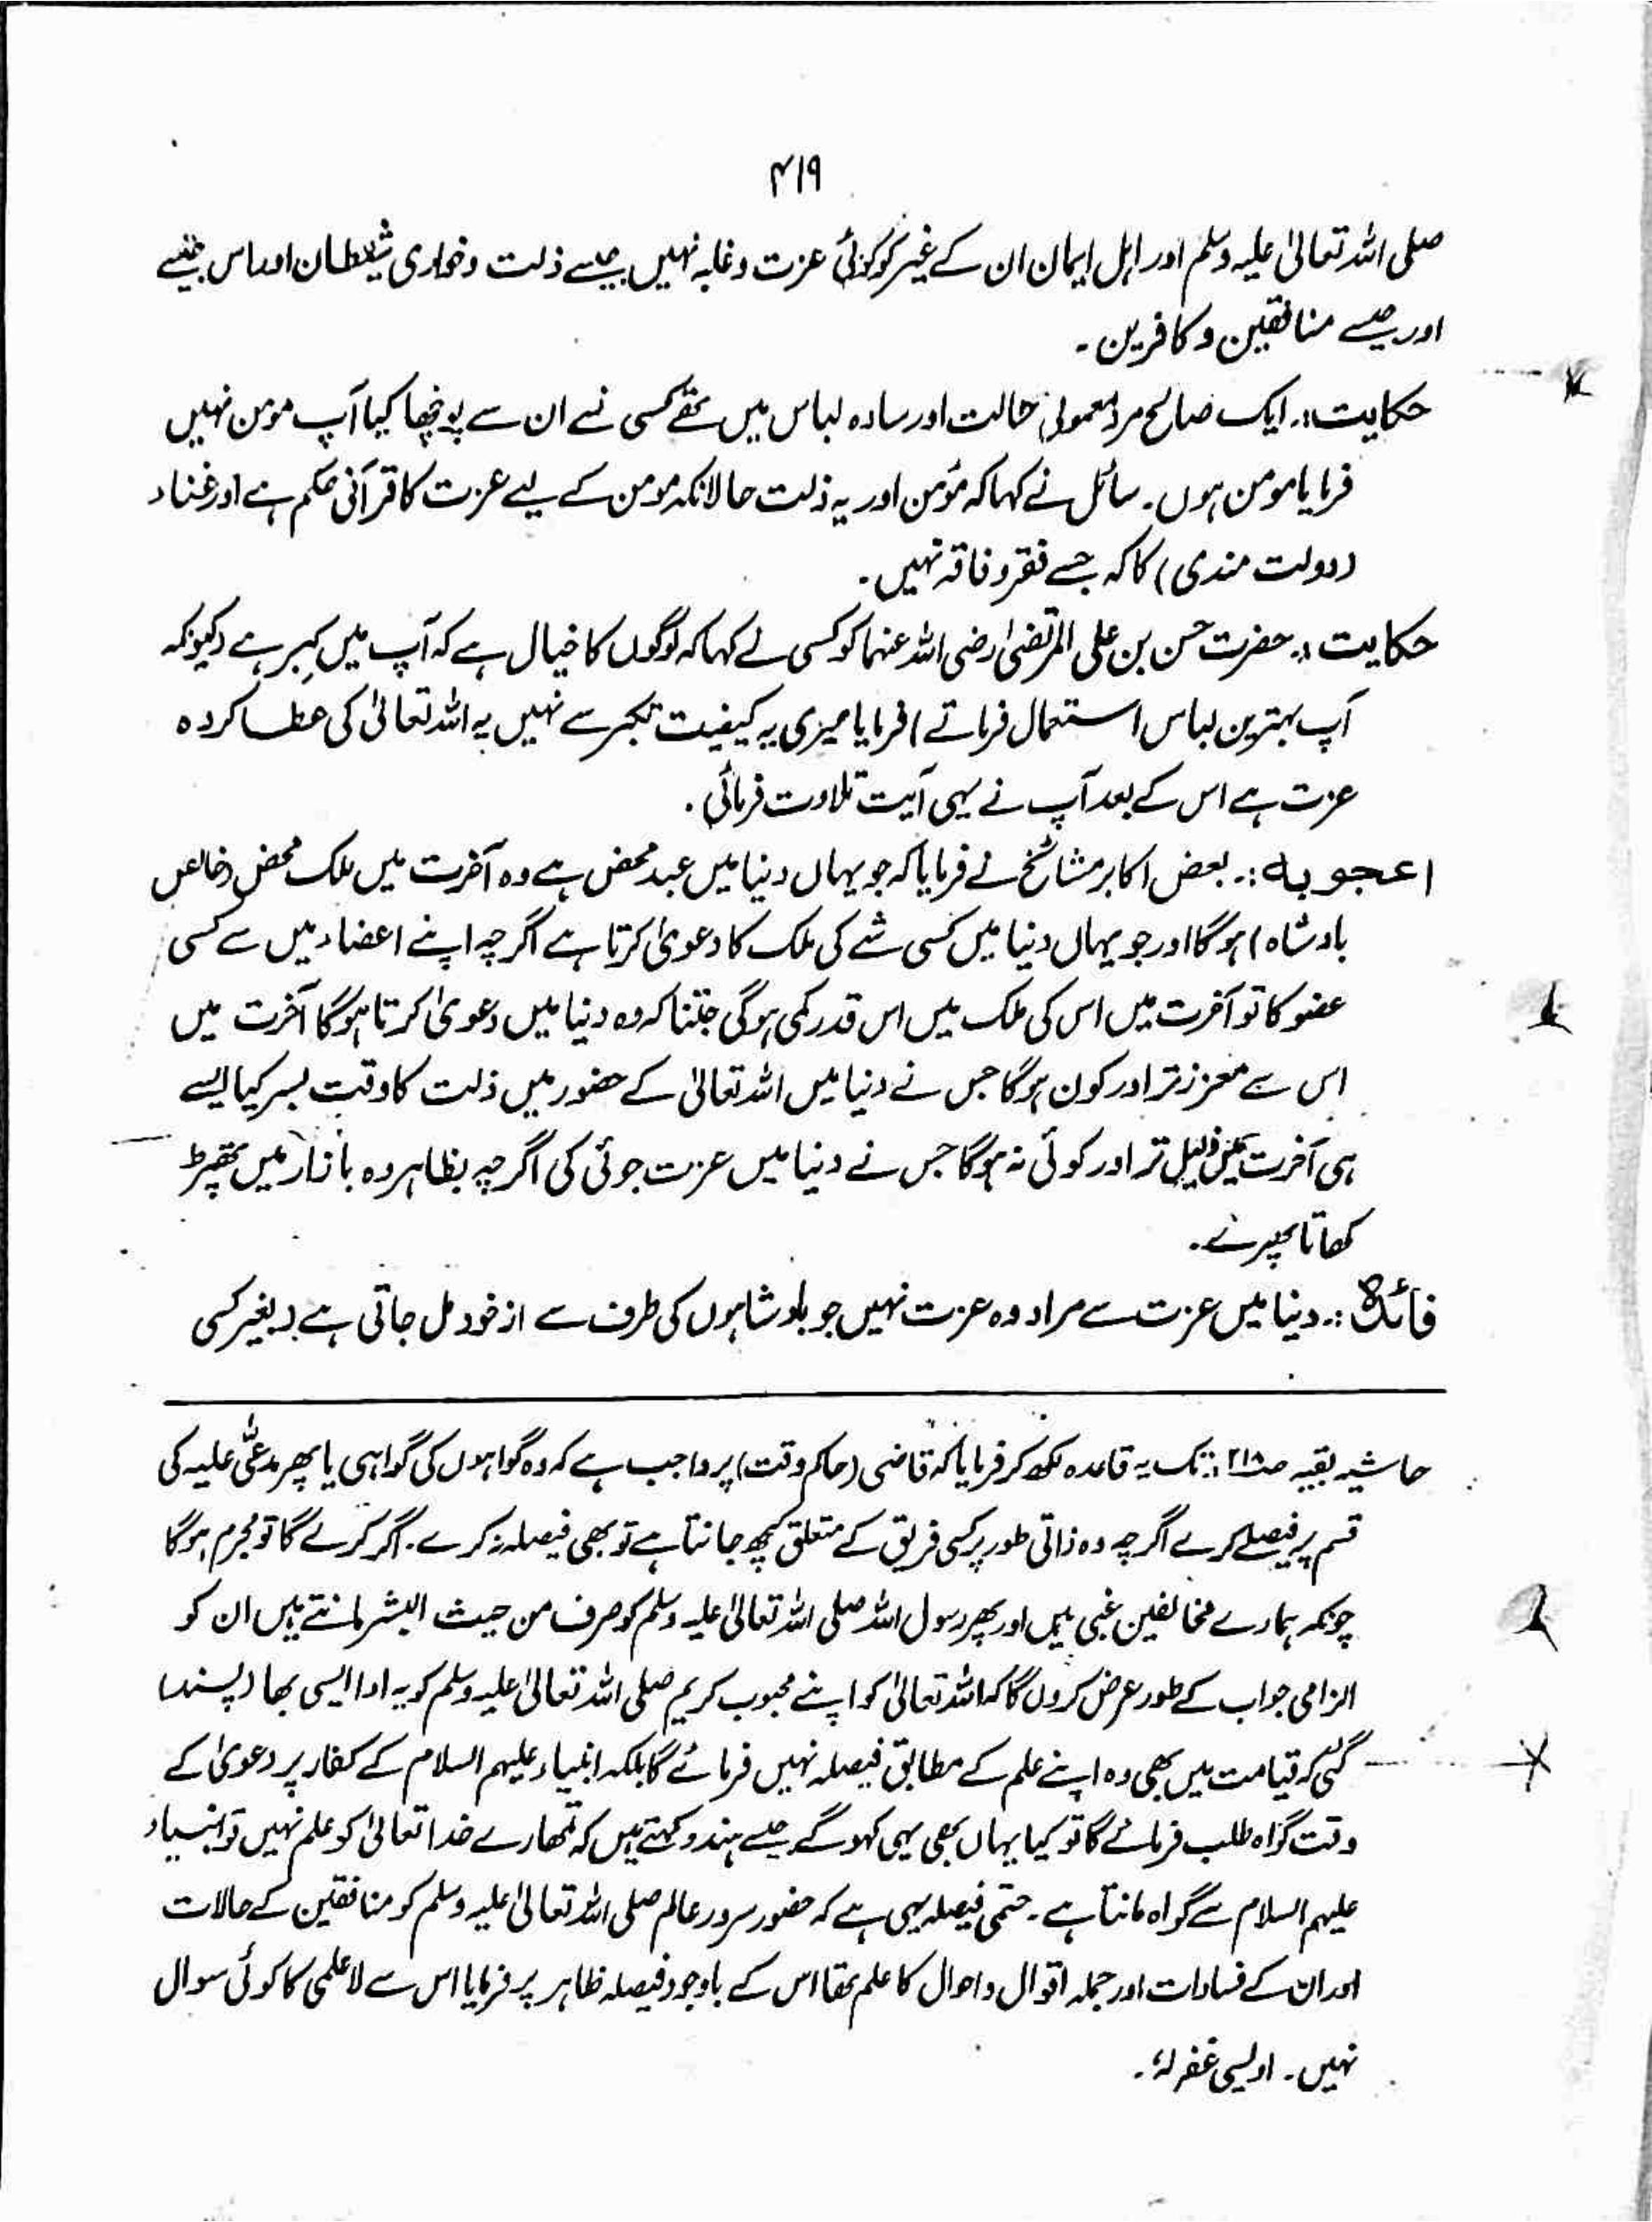 ۴۱۹
صلی اللہ تعالیٰ علیہ وسلم اور اہل ایمان ان کے غیر کو کوئی عزت و غلبہ نہیں جیسے ذلت و خواری شیطان اور اس جیسے
اور جیسے منافقین و کافرین ۔
حکایت :۔ ایک صالح مرد معمولی حالت اور سادہ لباس میں تھے کسی نے ان سے پوچھا کیا آپ مومن نہیں
فرمایا مومن ہوں ۔ سائل نے کہا کہ مؤمن اور یہ ذلت حالانکہ مومن کے لیے عزت کا قرآنی حکم ہے اور غناء
(دولت مندی) کا کہ جسے فقر و فاقہ نہیں ۔
حکایت :۔ حضرت حسن بن علی المرتضیٰ رضی اللہ عنہما کو کسی نے کہا کہ لوگوں کا خیال ہے کہ آپ میں کِبر ہے (کیونکہ
آپ بہترین لباس استعمال فرماتے) فرمایا میری یہ کیفیت تکبر سے نہیں یہ اللہ تعالیٰ کی عطا کردہ
عزت ہے اس کے بعد آپ نے یہی آیت تلاوت فرمائی ۔
اعجوبہ :۔ بعض اکابر مشائخ نے فرمایا کہ جو یہاں دنیا میں عبد محض ہے وہ آخرت میں ملک محض (خالص
بادشاہ) ہوگا اور جو یہاں دنیا میں کسی شے کی ملک کا دعویٰ کرتا ہے اگرچہ اپنے اعضاء میں سے کسی
عضو کا تو آخرت میں اس کی ملک میں اس قدر کمی ہوگی جتنا کہ وہ دنیا میں دعویٰ کرتا ہوگا آخرت میں
اس سے معزز تر اور کون ہوگا جس نے دنیا میں اللہ تعالیٰ کے حضور میں ذلت کا وقت بسر کیا ایسے
ہی آخرت میں ذلیل تر اور کوئی نہ ہوگا جس نے دنیا میں عزت جوئی کی اگرچہ بظاہر وہ بازار میں تھپڑ
کھاتا پھرے ۔
فائدہ :۔ دنیا میں عزت سے مراد وہ عزت نہیں جو بادشاہوں کی طرف سے از خود مل جاتی ہے (بغیر کسی
حاشیہ بقیہ صـ۲۱۸ :۔ تک یہ قاعدہ لکھ کر فرمایا کہ قاضی (حاکم وقت) پر واجب ہے کہ وہ گواہوں کی گواہی یا پھر مدعیٰ علیہ کی
قسم پر فیصلے کرے اگرچہ وہ ذاتی طور پر کسی فریق کے متعلق کچھ جانتا ہے تو بھی فیصلہ نہ کرے ۔ اگر کرے گا تو مجرم ہوگا
چونکہ ہمارے مخالفین غبی ہیں اور پھر رسول اللہ صلی اللہ تعالیٰ علیہ وسلم کو صرف من حیث البشر مانتے ہیں ان کو
الزامی جواب کے طور عرض کروں گا کہ اللہ تعالیٰ کو اپنے محبوب کریم صلی اللہ تعالیٰ علیہ وسلم کو یہ ادا ایسی بھا (پسند)
گئی کہ قیامت میں بھی وہ اپنے علم کے مطابق فیصلہ نہیں فرمائے گا بلکہ انبیاء علیہم السلام کے کفار پر دعویٰ کے
وقت گواہ طلب فرمائے گا تو کیا یہاں بھی یہی کہو گے جیسے ہندو کہتے ہیں کہ تمھارے خدا تعالیٰ کو علم نہیں تو انبیاء
علیہم السلام سے گواہ مانتا ہے ۔ حتمی فیصلہ یہی ہے کہ حضور سرور عالم صلی اللہ تعالیٰ علیہ وسلم کو منافقین کے حالات
اور ان کے فسادات اور جملہ اقوال و احوال کا علم تھا اس کے باوجود فیصلہ ظاہر پر فرمایا اس سے لا علمی کا کوئی سوال
نہیں ۔ اویسی غفرلہٗ ۔